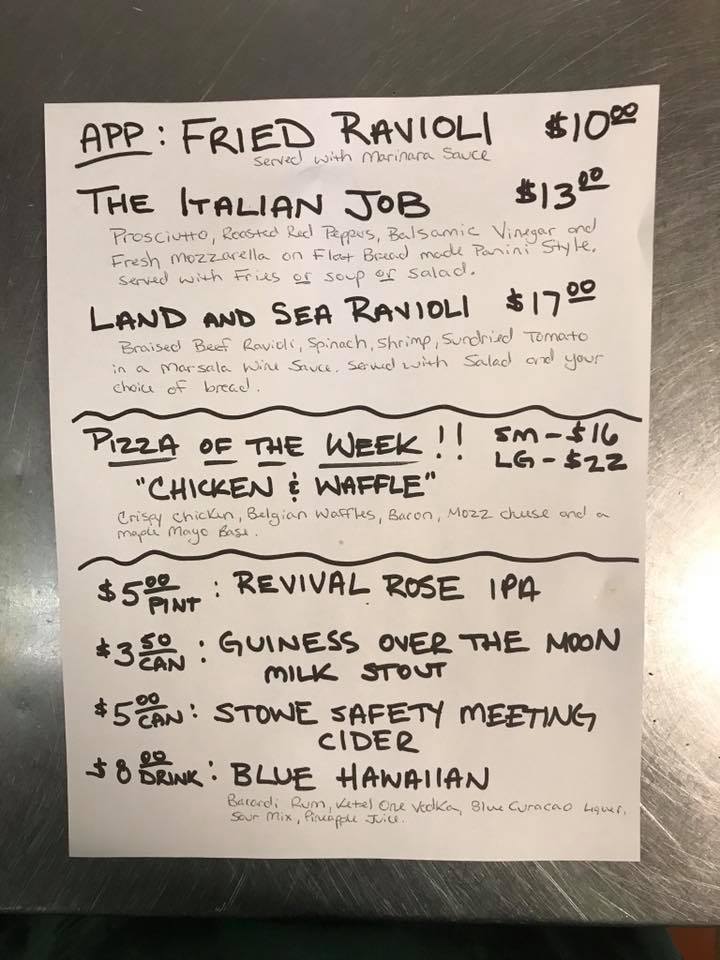 APP: FRIED RAVIOLI $10.00
served with Marinara Sauce
THE ITALIAN JOB $13.00
Prosciutto, Roasted Red Peppers, Balsamic Vinegar and
Fresh Mozzarella on Flat Bread made Panini Style.
served with Fries or soup or salad.
LAND AND SEA RAVIOLI $17.00
Braised Beef Ravioli, Spinach, Shrimp, Sundried Tomato
in a Marsala Wine Sauce. Served with Salad and your
choice of bread.
PIZZA OF THE WEEK!! SM-$16
LG-$22
"CHICKEN & WAFFLE"
Crispy chicken, Belgian Waffles, Bacon, Mozz cheese and a
maple Mayo Base.
$5.00 PINT: REVIVAL ROSE IPA
$3.50 CAN: GUINESS OVER THE MOON
MILK STOUT
$5.00 CAN: STOWE SAFETY MEETING
CIDER
$8.00 DRINK: BLUE HAWAIIAN
Bacardi Rum, Ketel One Vodka, Blue Curacao Liquer,
Sour Mix, Pineapple Juice.